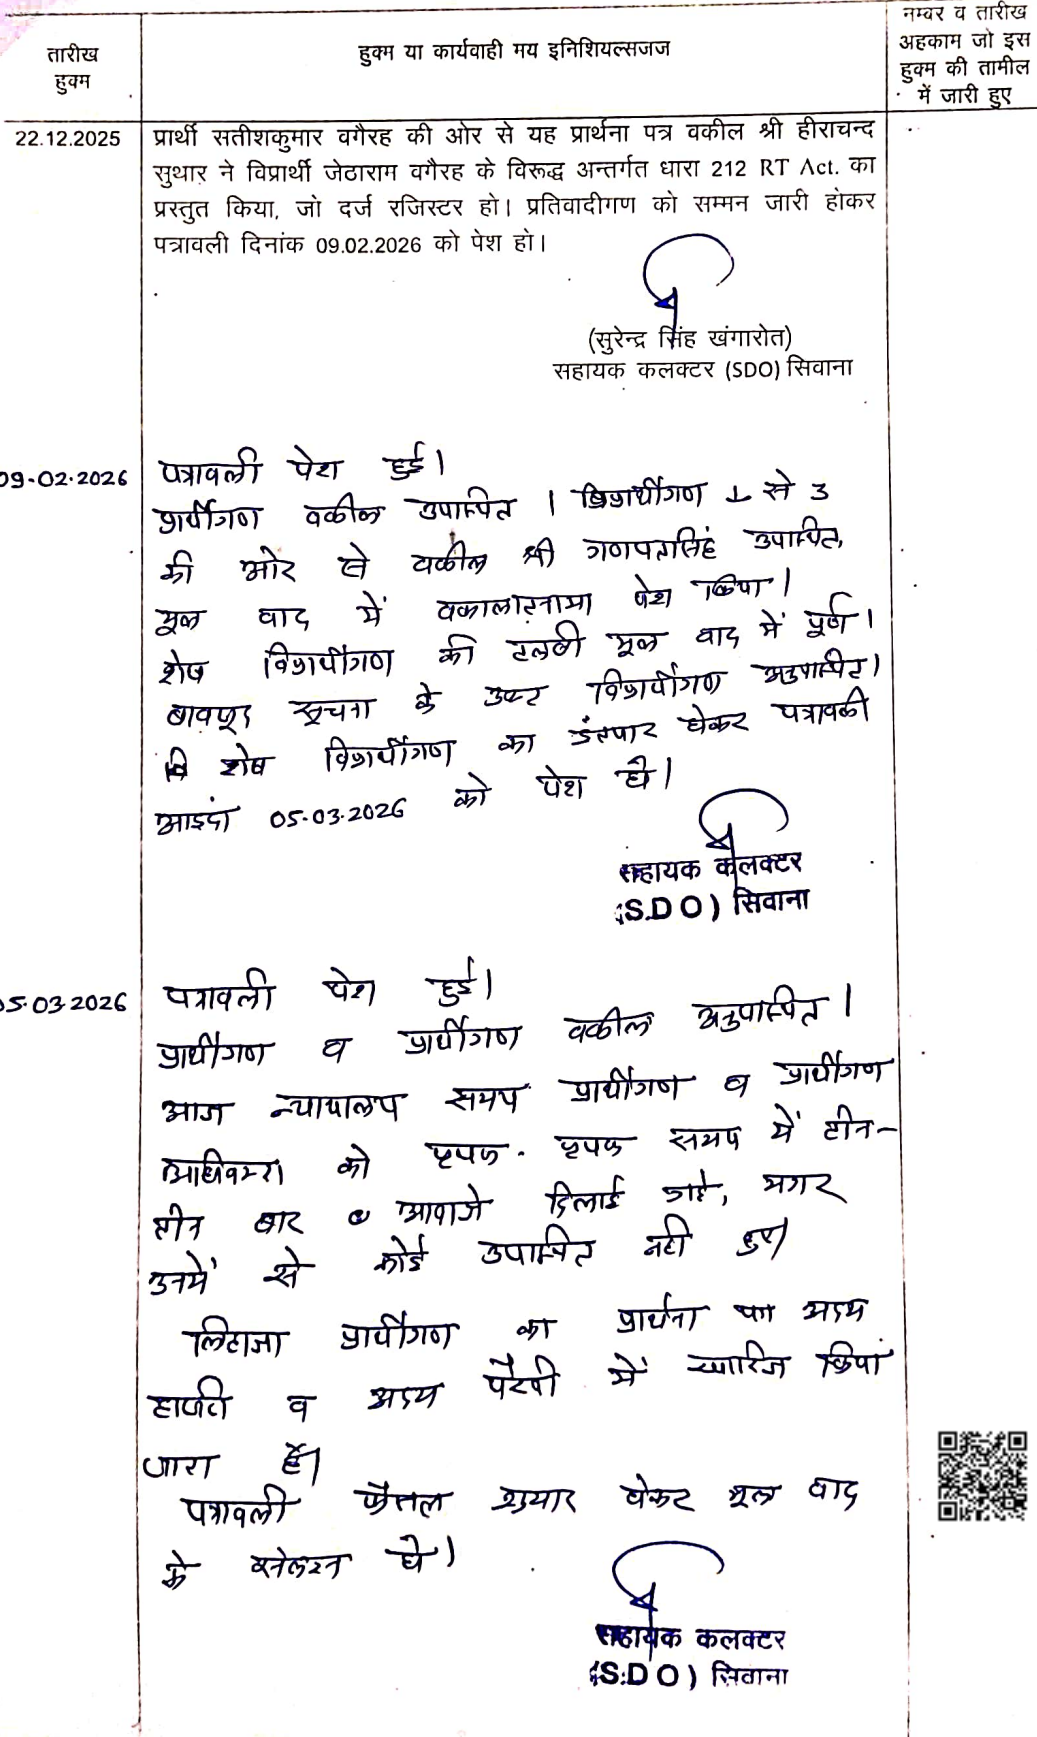 तारीख
हुक्म
हुक्म या कार्यवाही मय इनिशियल्सजज
नम्बर व तारीख
अहकाम जो इस
हुक्म की तामील
में जारी हुए
22.12.2025
प्रार्थी सतीशकुमार वगैरह की ओर से यह प्रार्थना पत्र वकील श्री हीराचन्द
सुथार ने विप्रार्थी जेठाराम वगैरह के विरूद्ध अन्तर्गत धारा 212 RT Act. का
प्रस्तुत किया, जो दर्ज रजिस्टर हो। प्रतिवादीगण को सम्मन जारी होकर
पत्रावली दिनांक 09.02.2026 को पेश हो।
(सुरेन्द्र सिंह खंगारोत)
सहायक कलक्टर (SDO) सिवाना
09-02-2026
पत्रावली पेश हुई।
प्रार्थीगण वकील उपस्थित। विप्रार्थीगण 1 से 3
की ओर से वकील श्री गणपतसिंह उपस्थित,
मूल वाद में वकालतनामा पेश किया।
शेष विप्रार्थीगण की तलबी मूल वाद में पूर्ण।
बावजूद सूचना के उक्त विप्रार्थीगण अनुपस्थित।
शेष विप्रार्थीगण का इंतजार होकर पत्रावली
आइंदा 05-03-2026 को पेश हो।
सहायक कलक्टर
(S.D O) सिवाना
05-03-2026
पत्रावली पेश हुई।
प्रार्थीगण व प्रार्थीगण वकील अनुपस्थित।
आज न्यायालय समय प्रार्थीगण व प्रार्थीगण
अधिवक्ता को पृथक-पृथक समय में तीन-
तीन बार आवाजे दिलाई गई, मगर
उनमें से कोई उपस्थित नही हुए।
लिहाजा प्रार्थीगण का प्रार्थना पत्र अदम
हाजरी व अदम पैरवी में खारिज किया
जाता है।
पत्रावली फैसल शुमार होकर मूल वाद
के संलग्न हो।
सहायक कलक्टर
(S.D O) सिवाना